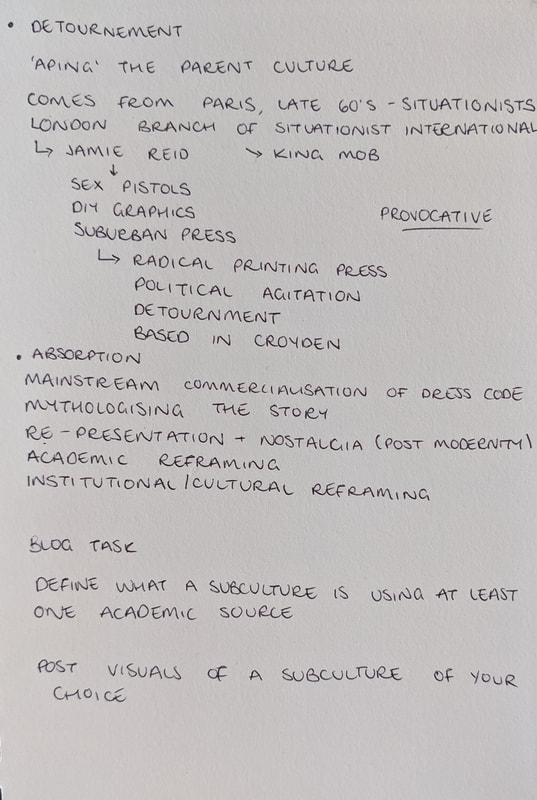 • DETOURNEMENT
'APING' THE PARENT CULTURE
COMES FROM PARIS, LATE 60'S - SITUATIONISTS
LONDON BRANCH OF SITUATIONIST INTERNATIONAL
↳ JAMIE REID ↘ KING MOB
↓
SEX PISTOLS
DIY GRAPHICS PROVOCATIVE
SUBURBAN PRESS
↳ RADICAL PRINTING PRESS
POLITICAL AGITATION
DETOURNMENT
BASED IN CROYDEN
• ABSORPTION
MAINSTREAM COMMERCIALISATION OF DRESS CODE
MYTHOLOGISING THE STORY
RE-PRESENTATION + NOSTALGIA (POST MODERNITY)
ACADEMIC REFRAMING
INSTITUTIONAL/CULTURAL REFRAMING
BLOG TASK
DEFINE WHAT A SUBCULTURE IS USING AT LEAST
ONE ACADEMIC SOURCE
POST VISUALS OF A SUBCULTURE OF YOUR
CHOICE